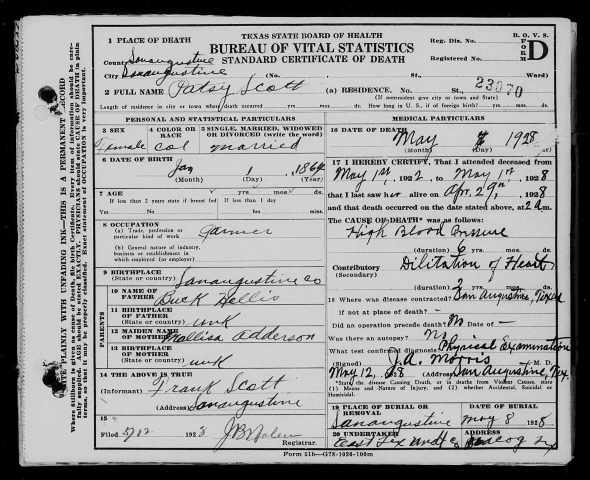 TEXAS STATE BOARD OF HEALTH
BUREAU OF VITAL STATISTICS
STANDARD CERTIFICATE OF DEATH
B. O. V. S.
FORM D
Reg. Dis. No.
Registered No.
1 PLACE OF DEATH
County Sanaugustine
City Sanaugustine (No. St. Ward)
23070
2 FULL NAME Patsy Scott (a) RESIDENCE. No. St.
(If nonresident give city or town and State)
Length of residence in city or town where death occurred yrs. mos. ds. How long in U. S., if of foreign birth? yrs. mos. ds.
PERSONAL AND STATISTICAL PARTICULARS
3 SEX Female
4 COLOR OR RACE col
5 SINGLE, MARRIED, WIDOWED OR DIVORCED (write the word) married
6 DATE OF BIRTH
Jan 1
(Month) (Day) (Year)
7 AGE yrs. mos. ds.
If less than 2 years state if breast fed If less than 1 day
Yes No hrs. min.
8 OCCUPATION
(a) Trade, profession or particular kind of work
(b) General nature of industry, business or establishment in which employed (or employer)
9 BIRTHPLACE
(State or country) Sanaugustine co
PARENTS
10 NAME OF FATHER Buck Hollis
11 BIRTHPLACE OF FATHER
(State or country) unk
12 MAIDEN NAME OF MOTHER Mallisa Adderson
13 BIRTHPLACE OF MOTHER
(State or country) unk
14 THE ABOVE IS TRUE
(Informant) Frank Scott
(Address) Sanaugustine
15
Filed 192
Registrar.
MEDICAL PARTICULARS
16 DATE OF DEATH
May 1928
(Month) (Day) (Year)
17 I HEREBY CERTIFY, That I attended deceased from
May 1st, 1922 to May 1st, 1928
that I last saw her alive on Apr. 29th, 1928
and that death occurred on the date stated above, at 2 a m.
The CAUSE OF DEATH* was as follows:
High Blood Pressure
(duration) 6 yrs. mos. ds.
Contributory Dilitation of Heart
(Secondary)
(duration) 2 yrs. mos. ds.
18 Where was disease contracted? San Augustine, Texas
if not at place of death? –
Did an operation precede death? No Date of –
Was there an autopsy? No
What test confirmed diagnosis? Physical Examination
(Signed) J. A. Morris M. D.
May 12, 28 (Address) San Augustine, Tex.
*State the disease Causing Death, or in deaths from Violent Causes, state (1) Means and Nature of Injury, and (2) whether Accidental, Suicidal or Homicidal.
19 PLACE OF BURIAL OR REMOVAL Sanaugustine
DATE OF BURIAL may 8 1928
20 UNDERTAKER East Tex
ADDRESS
Form 21b—G78-1026-100m
WRITE PLAINLY WITH UNFADING INK—THIS IS A PERMANENT RECORD